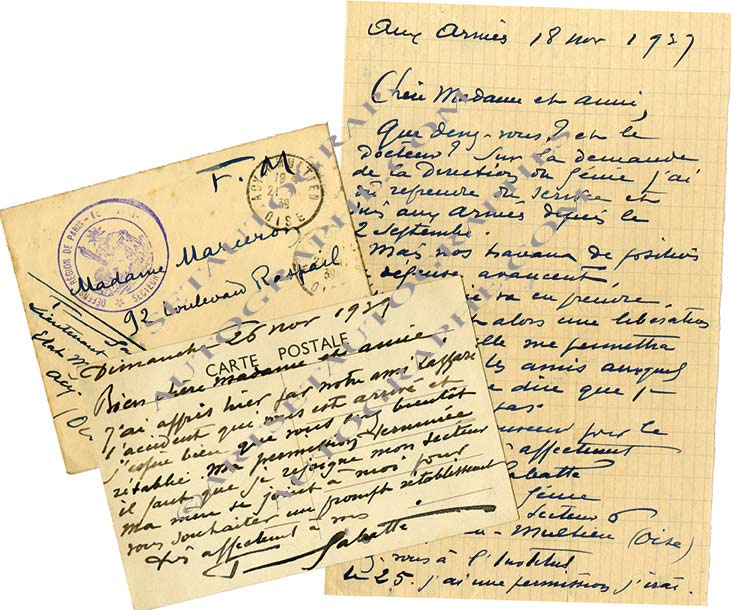 Aux Armées 18 nov 1939
Chère Madame et amie,
Que devenez-vous ? et le
docteur ? Sur la demande
de la Direction du Génie j'ai
dû reprendre du service et
suis aux armées depuis le
2 Septembre.
Mais nos travaux de position
défense avancent,
va en prendre
alors une libération
elle me permettra
les amis auxquels
dire que je
pas
pour le
affectueux
Sabatté
Génie
Secteur 6
Multien (Oise)
vous à l'Institut
le 25. j'ai une permission j'irai.
F. M
ACY-MULTIEN
19
21
39
OISE
DEFENSE
REGION DE PARIS
Madame Marceron
92 boulevard Raspail
Lieutenant
Etat M
Acy
CARTE POSTALE
Dimanche 26 nov 1939
Bien chère madame et amie
J'ai appris hier par notre ami Laffaré
l'accident qui vous est arrivé et
j'espère bien que vous serez bientôt
rétablie. Ma permission terminée
il faut que je rejoigne mon secteur
Ma mère se joint à moi pour
vous souhaiter un prompt rétablissement
Très affectueux à vous
Sabatté
ARTS ET AUTOGRAPHES
AUTOGRAPHES.COM